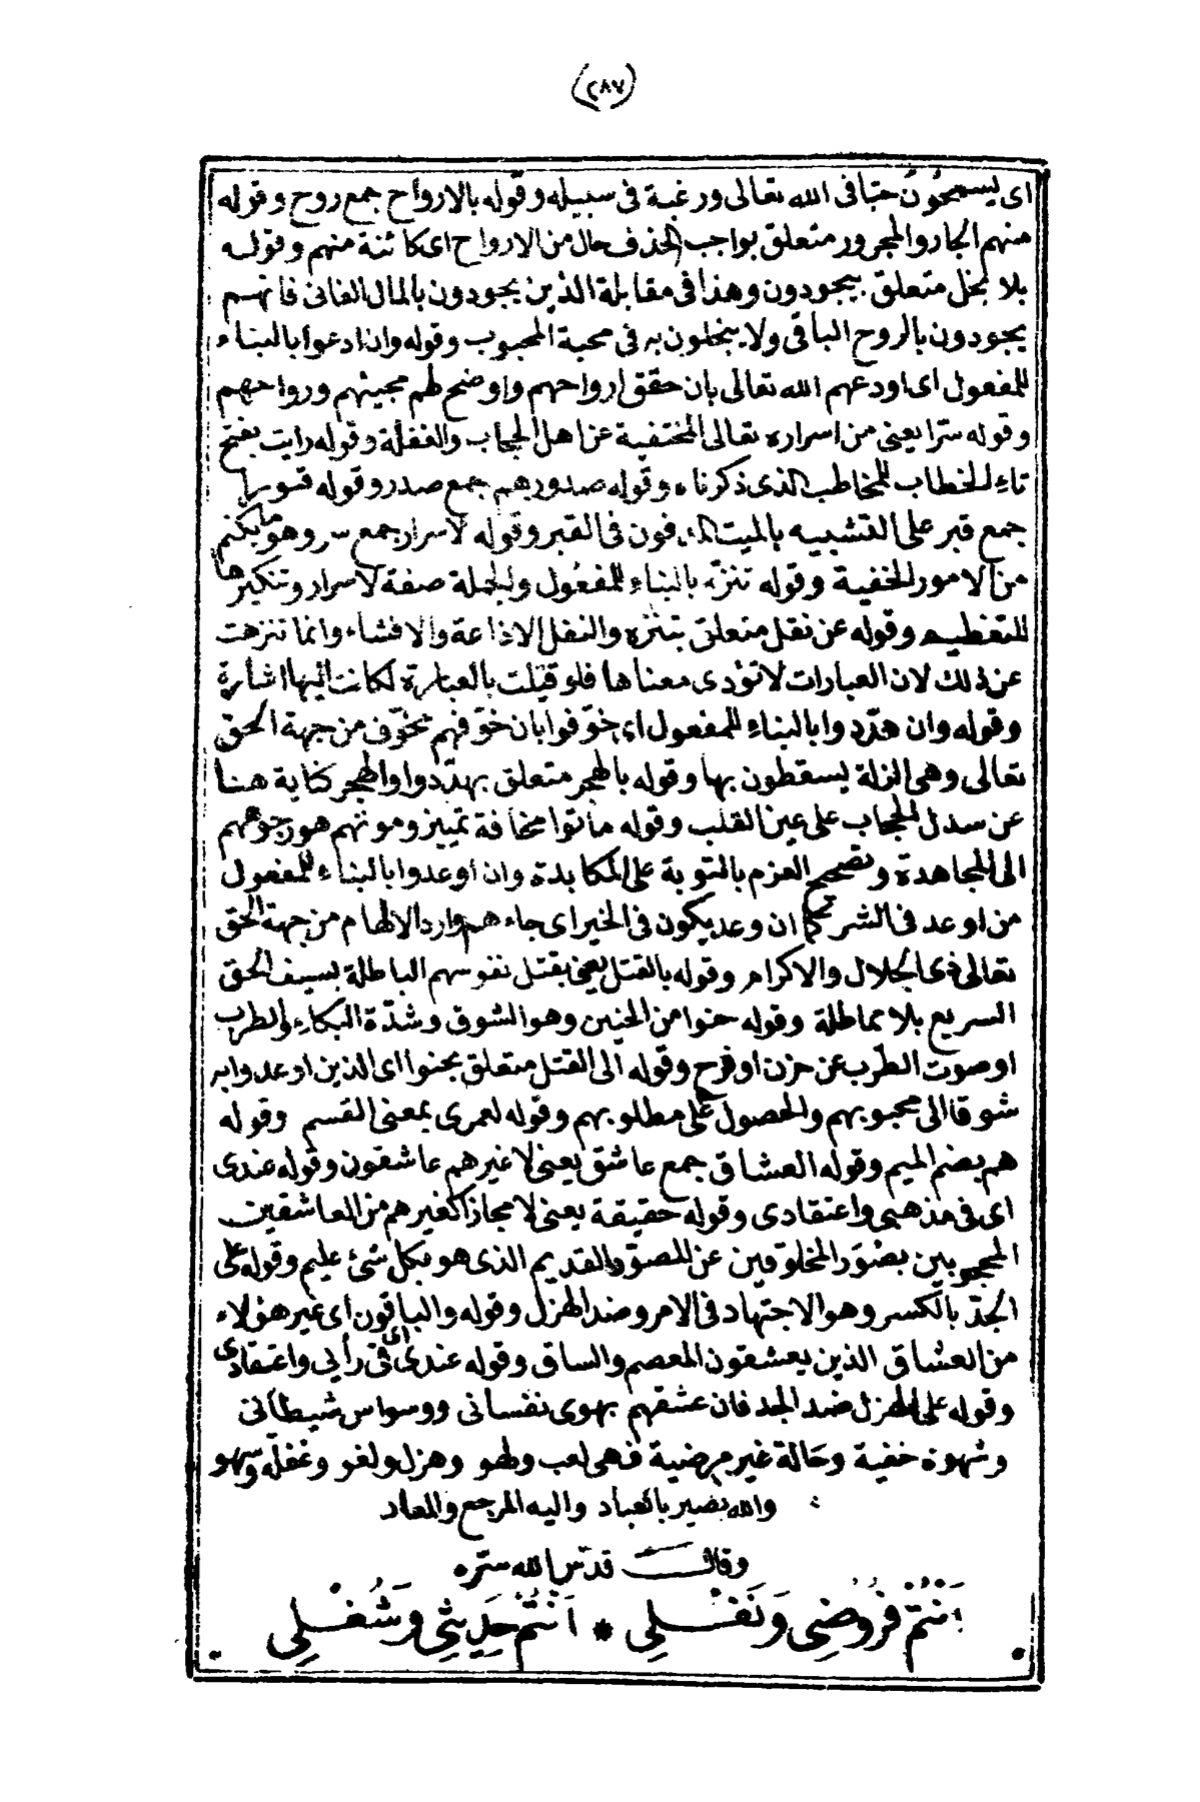 (٢٨٧)
اى يسمحون حبا فى الله تعالى ورغبة فى سبيله وقوله بالارواح جمع روح وقوله
منهم الجار والمجرور متعلق بواجب الحذف حال من الارواح اى كائنة منهم وقوله
بلا بخل متعلق بيجودون وهذا فى مقابلة الذين يجودون بالمال الفانى فانهم
يجودون بالروح الباقى ولا يبخلون به فى محبة المحبوب وقوله وان ادعوا بالبناء
للمفعول اى اودعهم الله تعالى بان حقق ارواحهم واوضح لهم مجيئهم ورواحهم
وقوله سترا يعنى من اسراره تعالى المختفية عن اهل الحجاب والغفلة وقوله رايت بفتح
تاء الخطاب للمخاطب الذى ذكرناه وقوله صدورهم جمع صدر وقوله قبورا
جمع قبر على التشبيه بالميت المدفون فى القبر وقوله لاسرار جمع سر وهو ما يكتم
من الامور الخفية وقوله تنزه بالبناء للمفعول والجملة صفة لاسرار وتنكيرها
للتعظيم وقوله عن نقل متعلق بتنزه والنقل الاذاعة والافشاء وانما تنزهت
عن ذلك لان العبارات لا تؤدى معناها فلو قيلت بالعبارة لكانت اليها اشارة
وقوله وان هدّدوا بالبناء للمفعول اى خوّفوا بان خوّفهم مخوّف من جهة الحق
تعالى وهى الزلة يسقطون بها وقوله بالهجر متعلق بهدّدوا والهجر كناية هنا
عن سدل الحجاب على عين القلب وقوله ماتوا مخافة تمييز وموتهم هو رجوعهم
الى المجاهدة وتصحيح العزم بالتوبة على المكابدة وان اوعدوا بالبناء للمفعول
من اوعد فى الشر كما ان وعد يكون فى الخير اى جاءهم وارد الالهام من جهة الحق
تعالى ذى الجلال والاكرام وقوله بالقتل يعنى بقتل نفوسهم الباطلة بسيف الحق
السريع بلا مماطلة وقوله حنوا من الحنين وهو الشوق وشدّة البكاء والطرب
او صوت الطرب عن حزن او فرح وقوله الى القتل متعلق بحنوا اى الذين اوعدوا به
شوقا الى محبوبهم والحصول على مطلوبهم وقوله لعمرى بمعنى القسم وقوله
هم بضم الميم وقوله العشاق جمع عاشق يعنى لا غيرهم عاشقون وقوله عندى
اى فى مذهبى واعتقادى وقوله حقيقة يعنى لا مجازا كغيرهم من العاشقين
المحجوبين بصور المخلوقين عن المصوّر القديم الذى هو بكل شئ عليم وقوله على
الجدّ بالكسر وهو الاجتهاد فى الامر وضد الهزل وقوله والباقون اى غير هؤلاء
من العشاق الذين يعشقون المعصم والساق وقوله عندى اى فى رأيى واعتقادى
وقوله على الهزل ضد الجد فان عشقهم بهوى نفسانى ووسواس شيطانى
وشهوة خفية وحالة غير مرضية فهى لعب ولهو وهزل ولغو وغفلة وسهو
والله بصير بالعباد واليه المرجع والمعاد
وقال قدّس الله سرّه
اَنْتُمْ فُرُوُضِى وَنَفْلِى * اَنْتُمْ حَدِيثِى وَشُغْلِى